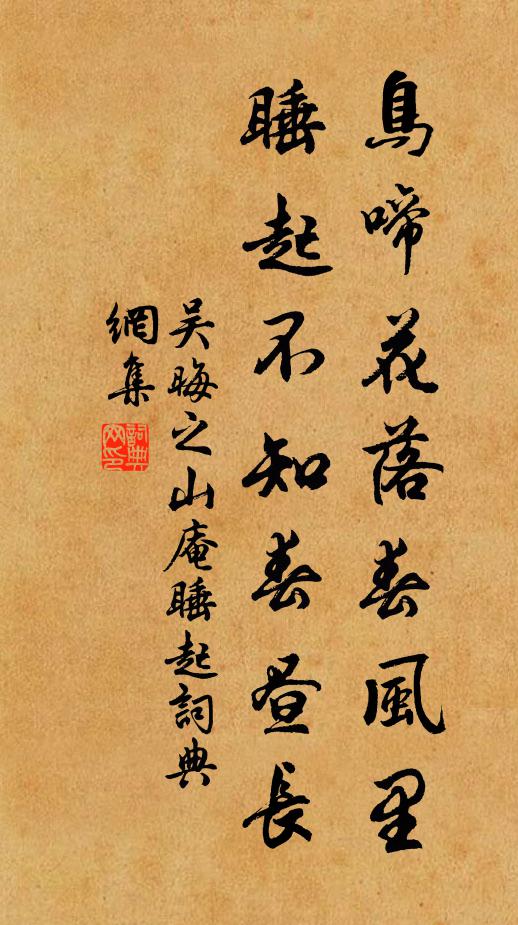 鳥啼花落春風里
睡起不知春昼長
吴晦之山庵睡起詞典
網集
詞典
网印